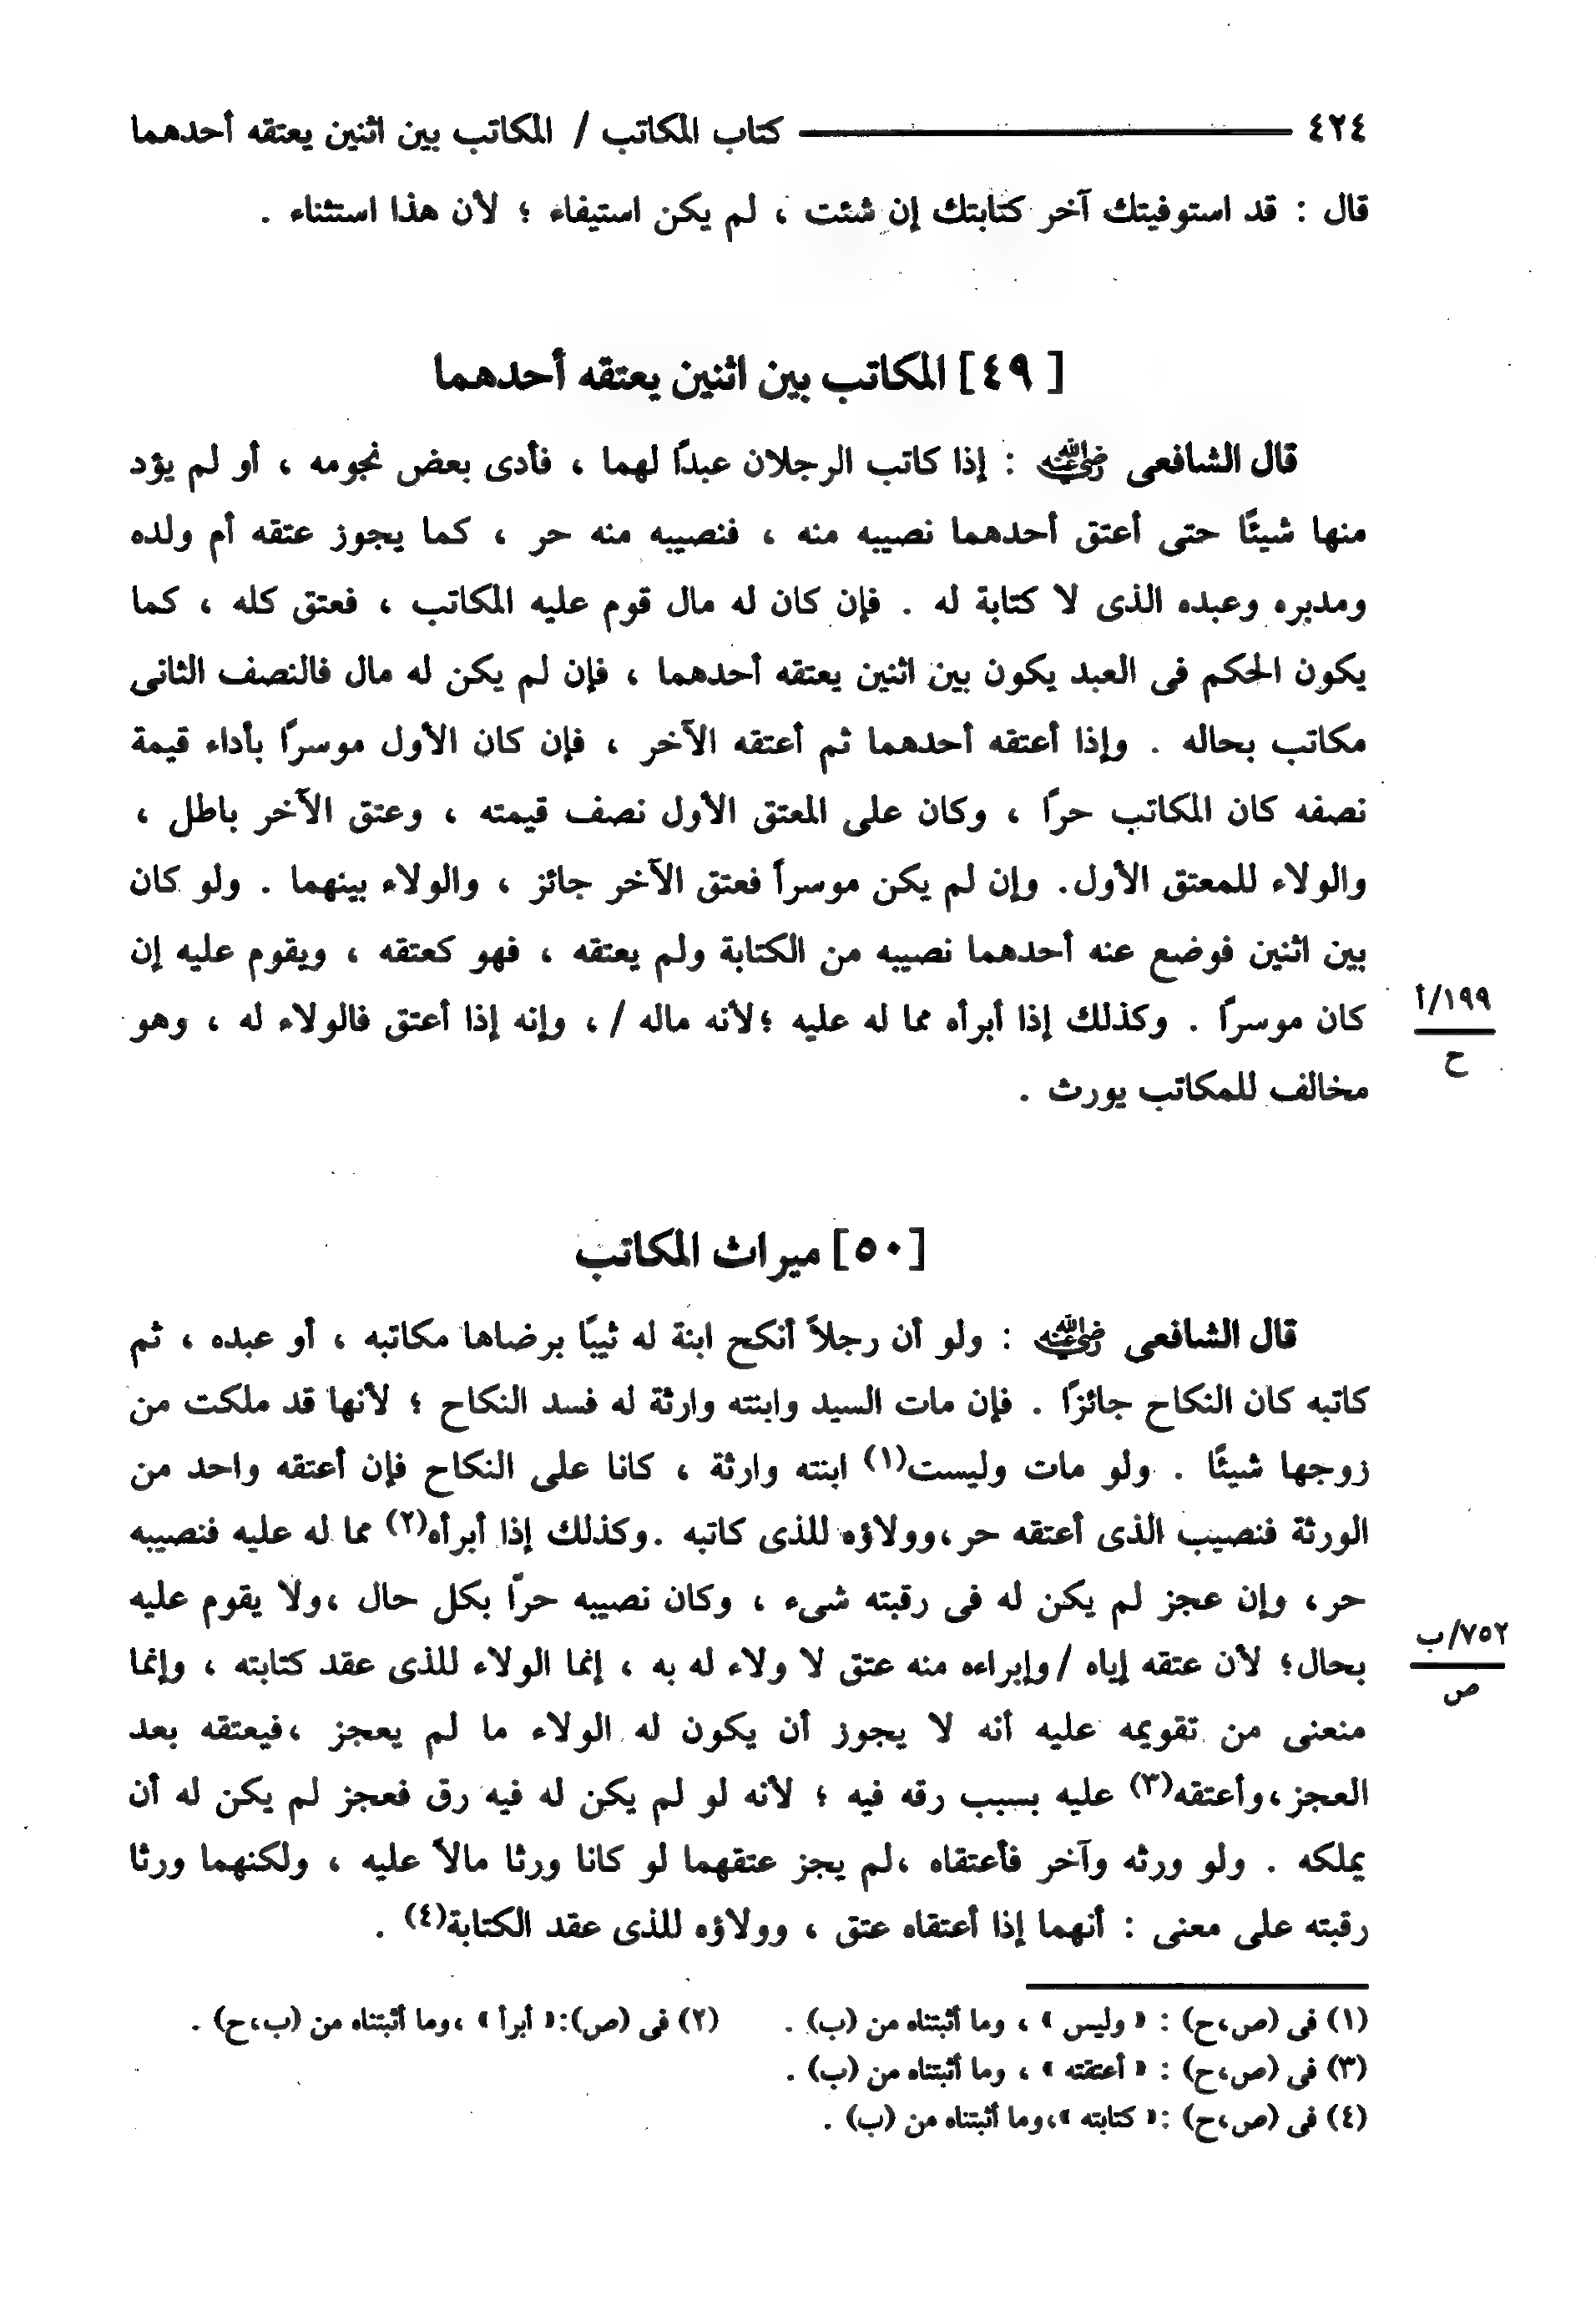 ٤٢٤ ــــــــــــــــــــــــ كتاب المكاتب / المكاتب بين اثنين يعتقه أحدهما
قال : قد استوفيتك آخر كتابتك إن شئت ، لم يكن استيفاء ؛ لأن هذا استثناء .
[٤٩] المكاتب بين اثنين يعتقه أحدهما
قال الشافعى رضي الله عنه : إذا كاتب الرجلان عبدًا لهما ، فأدى بعض نجومه ، أو لم يؤد
منها شيئًا حتى أعتق أحدهما نصيبه منه ، فنصيبه منه حر ، كما يجوز عتقه أم ولده
ومدبره وعبده الذى لا كتابة له . فإن كان له مال قوم عليه المكاتب ، فعتق كله ، كما
يكون الحكم فى العبد يكون بين اثنين يعتقه أحدهما ، فإن لم يكن له مال فالنصف الثانى
مكاتب بحاله . وإذا أعتقه أحدهما ثم أعتقه الآخر ، فإن كان الأول موسرًا بأداء قيمة
نصفه كان المكاتب حرًا ، وكان على المعتق الأول نصف قيمته ، وعتق الآخر باطل ،
والولاء للمعتق الأول. وإن لم يكن موسراً فعتق الآخر جائز ، والولاء بينهما . ولو كان
بين اثنين فوضع عنه أحدهما نصيبه من الكتابة ولم يعتقه ، فهو كعتقه ، ويقوم عليه إن
١٩٩/أ
ح
كان موسرًا . وكذلك إذا أبرأه مما له عليه ؛لأنه ماله /، وإنه إذا أعتق فالولاء له ، وهو
مخالف للمكاتب يورث .
[٥٠] ميراث المكاتب
قال الشافعى رضي الله عنه : ولو أن رجلاً أنكح ابنة له ثيبًا برضاها مكاتبه ، أو عبده ، ثم
كاتبه كان النكاح جائزًا . فإن مات السيد وابنته وارثة له فسد النكاح ؛ لأنها قد ملكت من
زوجها شيئًا . ولو مات وليست(١) ابنته وارثة ، كانا على النكاح فإن أعتقه واحد من
الورثة فنصيب الذى أعتقه حر،وولاؤه للذى كاتبه .وكذلك إذا أبرأه(٢) مما له عليه فنصيبه
حر، وإن عجز لم يكن له فى رقبته شىء ، وكان نصيبه حرًا بكل حال ،ولا يقوم عليه
٧٥٢/ب
ص
بحال؛ لأن عتقه إياه /وإبراءه منه عتق لا ولاء له به ، إنما الولاء للذى عقد كتابته ، وإنما
منعنى من تقويمه عليه أنه لا يجوز أن يكون له الولاء ما لم يعجز ،فيعتقه بعد
العجز،وأعتقه(٣) عليه بسبب رقه فيه ؛ لأنه لو لم يكن له فيه رق فعجز لم يكن له أن
يملكه . ولو ورثه وآخر فأعتقاه ،لم يجز عتقهما لو كانا ورثا مالاً عليه ، ولكنهما ورثا
رقبته على معنى : أنهما إذا أعتقاه عتق ، وولاؤه للذى عقد الكتابة(٤) .
(١) فى (ص،ح) : « وليس » ، وما أثبتناه من (ب) . (٢) فى (ص):« أبرأ » ،وما أثبتناه من (ب،ح) .
(٣) فى (ص،ح) : « أعتقته » ، وما أثبتناه من (ب) .
(٤) فى (ص،ح) :« كتابته »،وما أثبتناه من (ب) .